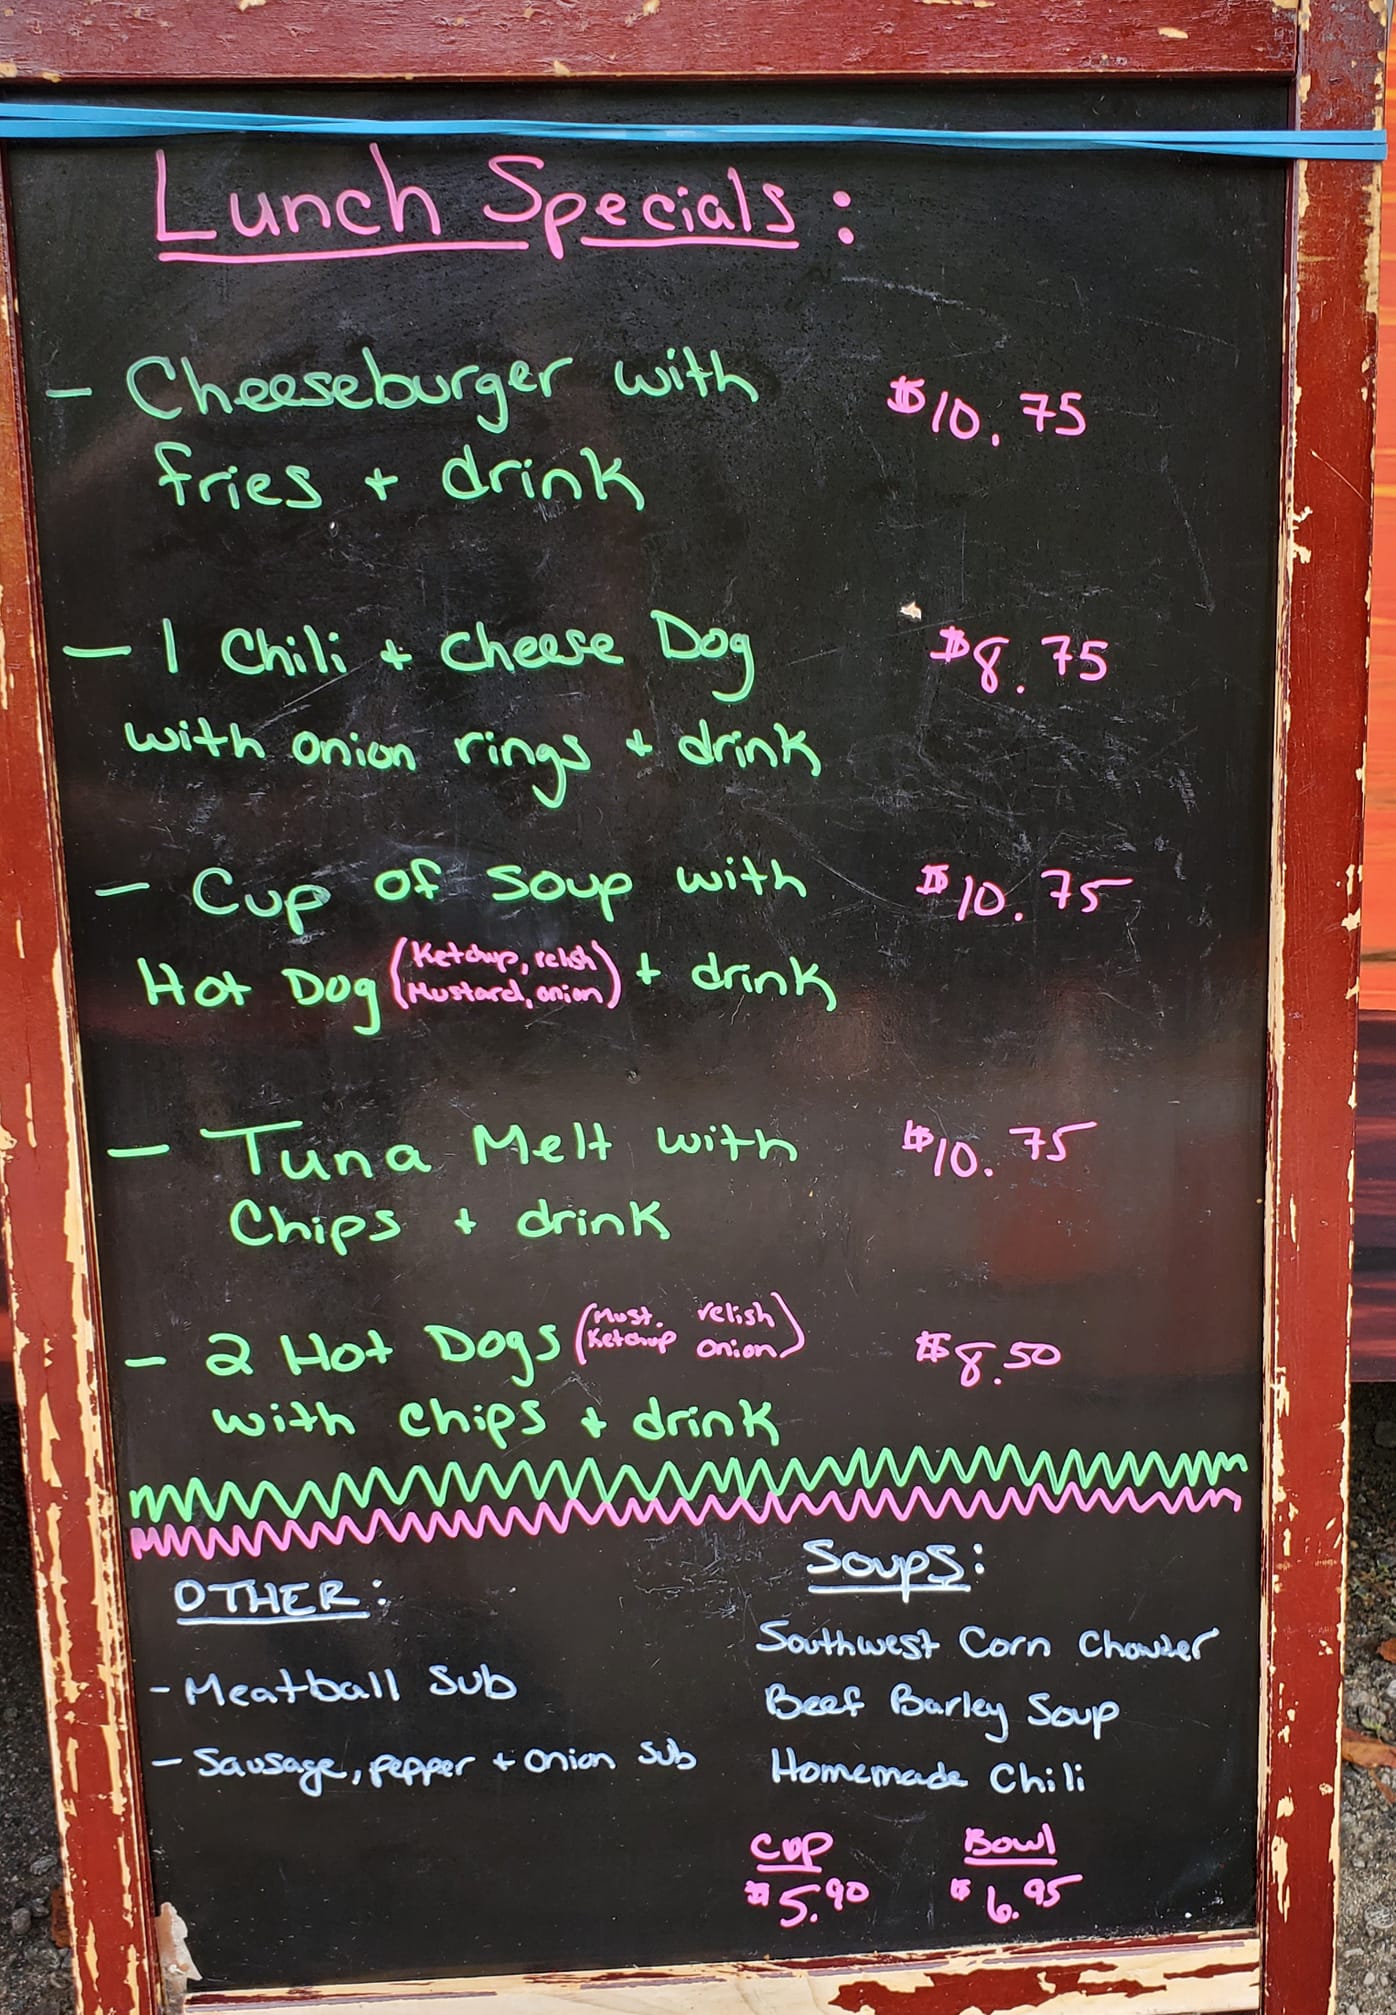 Lunch Specials:
- Cheeseburger with $10.75
fries + drink
- 1 Chili + Cheese Dog $8.75
with onion rings + drink
- Cup of Soup with $10.75
Hot Dog (Ketchup, relish Mustard, onion) + drink
- Tuna Melt with $10.75
Chips + drink
- 2 Hot Dogs (Must. relish Ketchup onion) $8.50
with chips + drink
OTHER:
- Meatball Sub
- Sausage, pepper + onion sub
Soups:
Southwest Corn Chowder
Beef Barley Soup
Homemade Chili
Cup Bowl
$5.90 $6.95